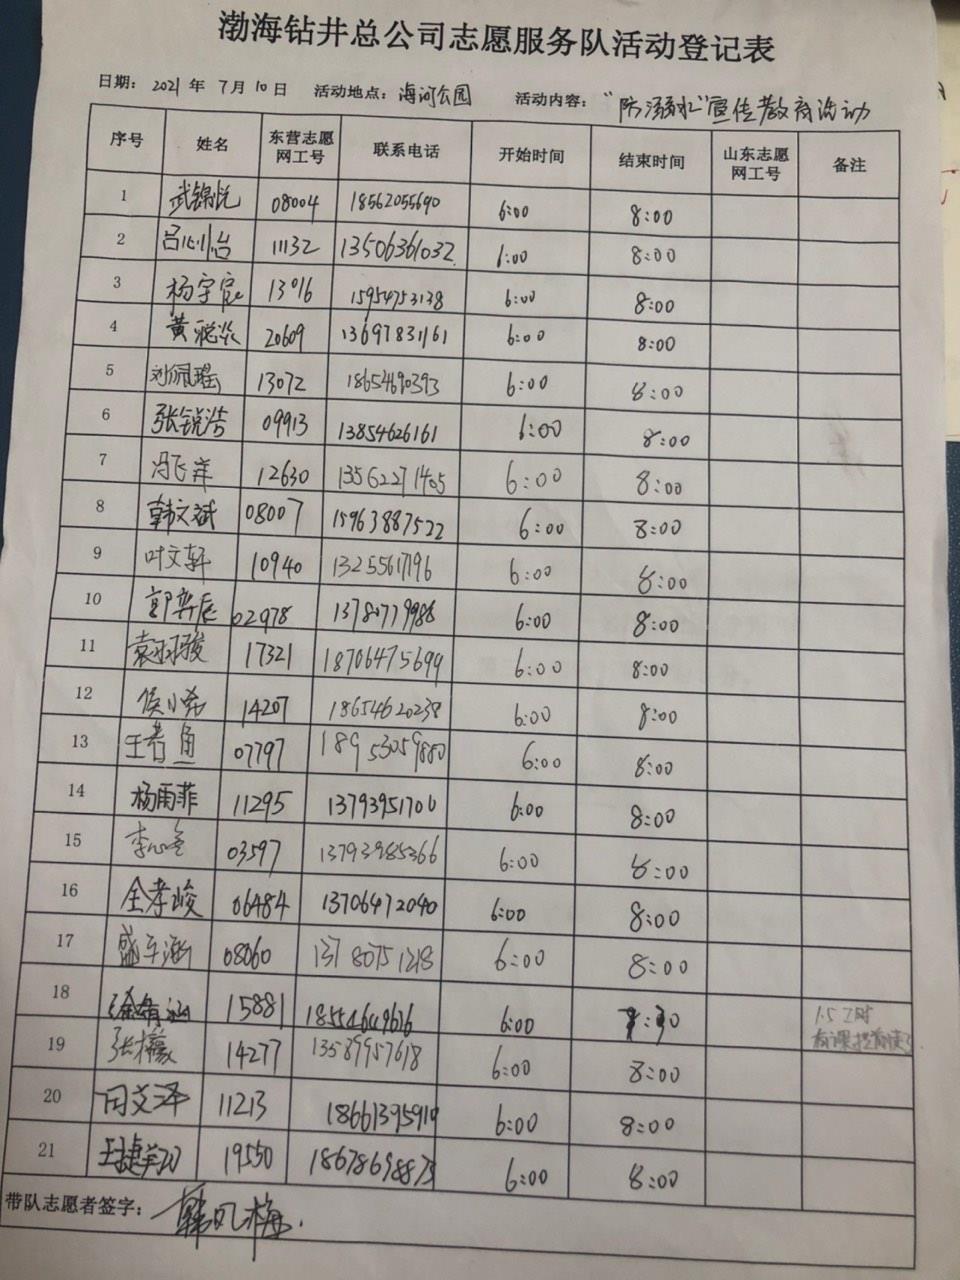 渤海钻井总公司志愿服务队活动登记表
日期: 2021 年 7 月 10 日 活动地点: 海河公园 活动内容: "防溺水"宣传教育活动
序号 姓名 东营志愿网工号 联系电话 开始时间 结束时间 山东志愿网工号 备注
1 武锦悦 08004 18562055690 6:00 8:00
2 11132 13506361032 6:00 8:00
3 杨宇宸 13016 15954753138 6:00 8:00
4 黄 20609 13697831161 6:00 8:00
5 刘佩瑶 13072 18654690393 6:00 8:00
6 张锐浩 09913 13854626161 6:00 8:00
7 冯飞洋 12630 13562271405 6:00 8:00
8 韩文斌 08007 15963887522 6:00 8:00
9 叶文轩 10940 13255617196 6:00 8:00
10 郭奕辰 02978 13780779986 6:00 8:00
11 袁羽骏 17321 18706475699 6:00 8:00
12 侯小希 14207 18654620238 6:00 8:00
13 王若鱼 07797 18953059880 6:00 8:00
14 杨雨菲 11295 13793951700 6:00 8:00
15 03597 13793985366 6:00 8:00
16 全孝峻 06484 13706472040 6:00 8:00
17 盛 08060 13780751218 6:00 8:00
18 徐婧涵 15881 18554649616 6:00 7:30 1.5工时
有课提前走了
19 张 14277 13589957618 6:00 8:00
20 田文泽 11213 18661395910 6:00 8:00
21 王捷 19550 18678698873 6:00 8:00
带队志愿者签字: 韩凤梅.